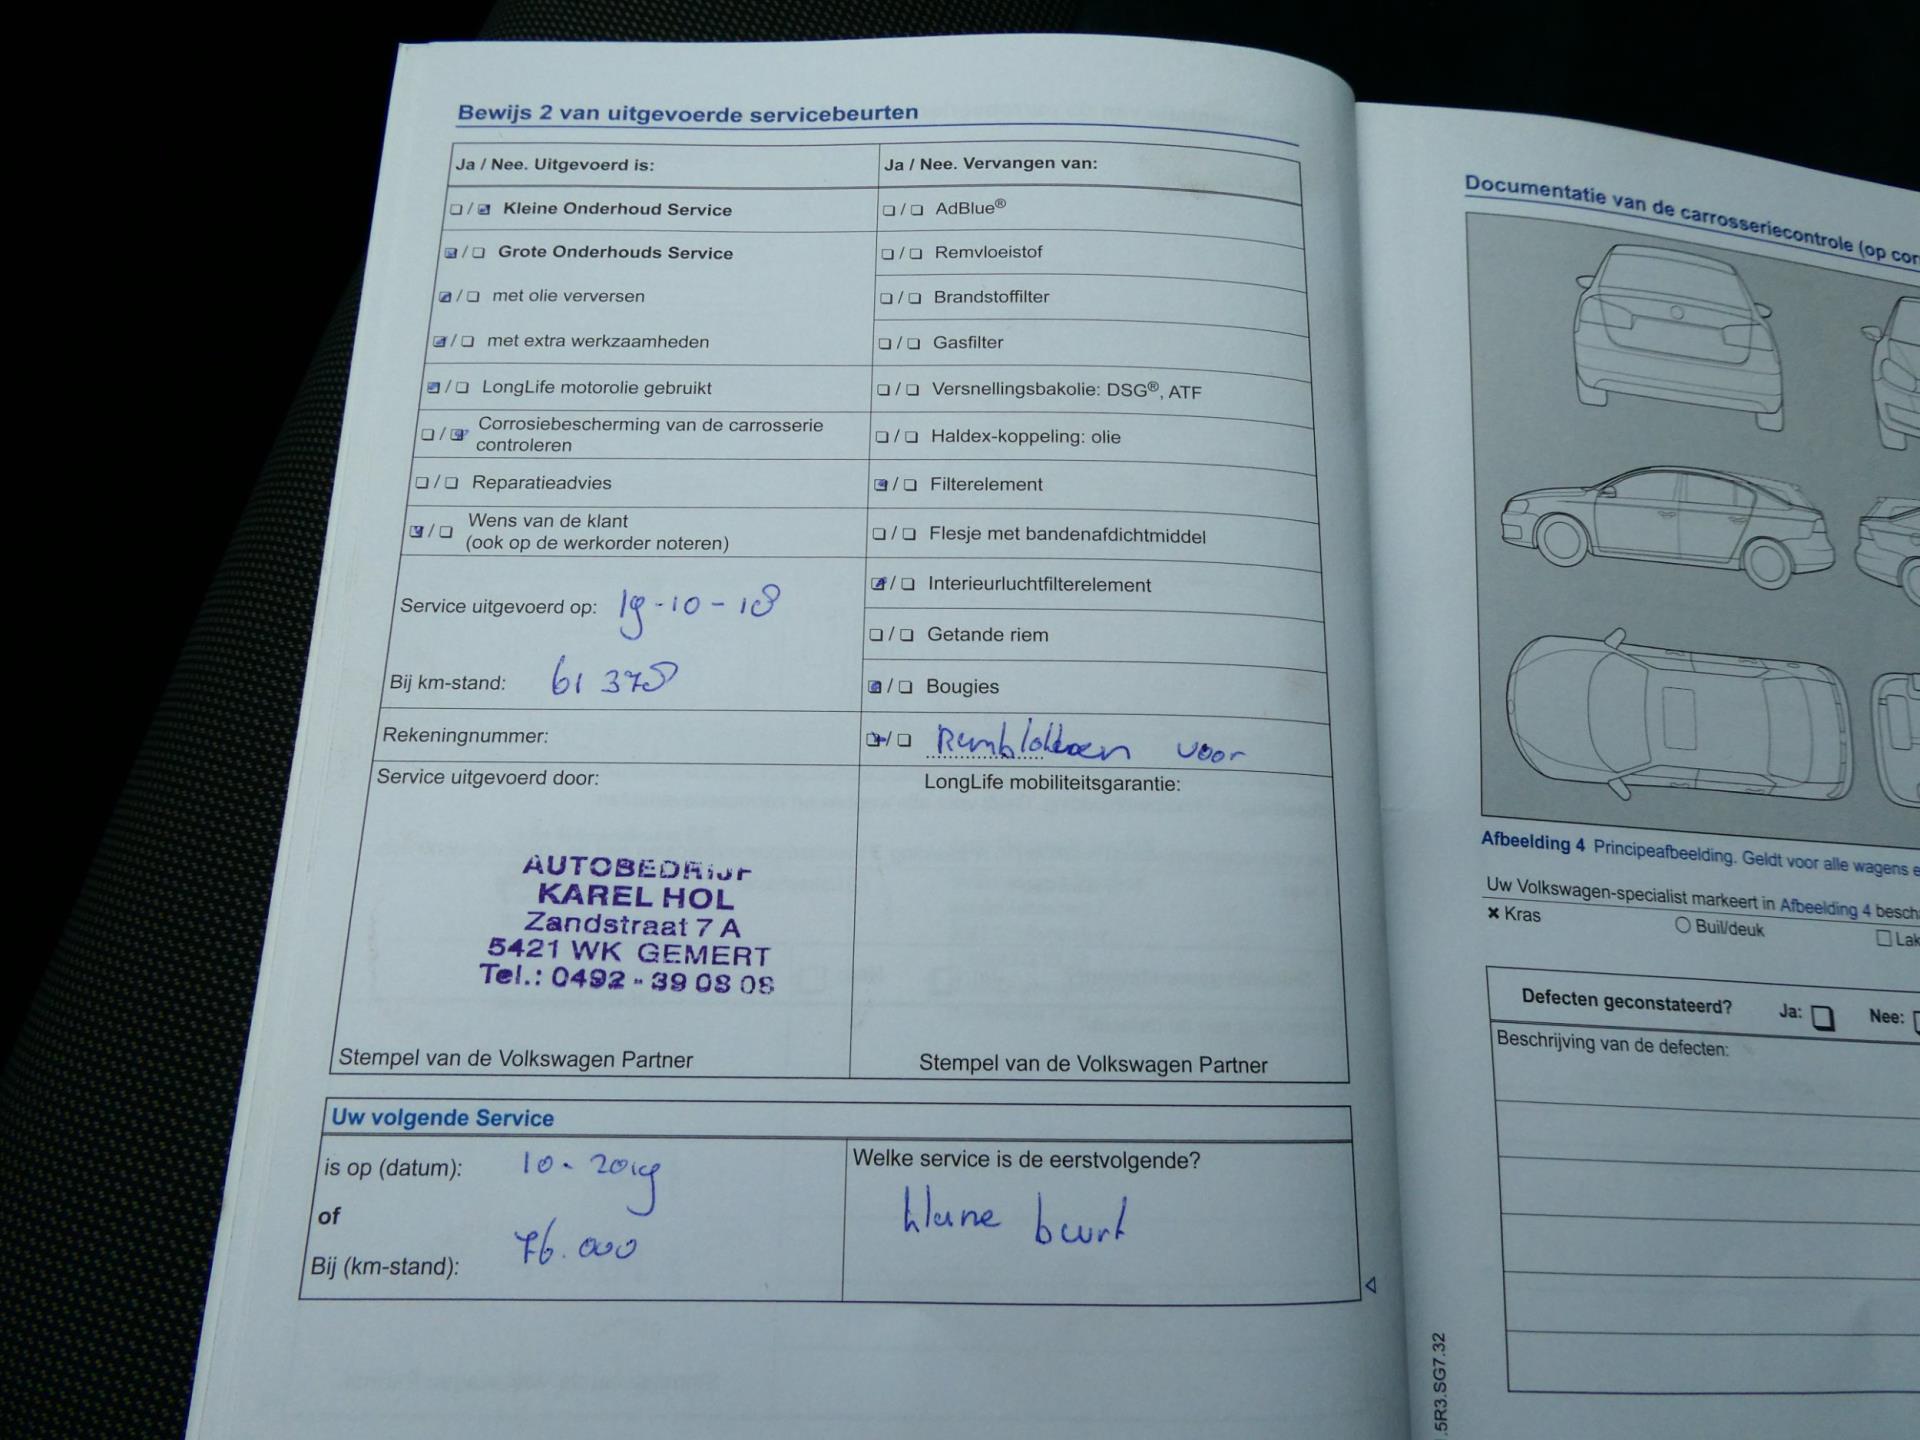 Bewijs 2 van uitgevoerde servicebeurten
Ja / Nee. Uitgevoerd is:
Ja / Nee. Vervangen van:
Kleine Onderhoud Service
AdBlue®
Grote Onderhouds Service
Remvloeistof
met olie verversen
Brandstoffilter
met extra werkzaamheden
Gasfilter
LongLife motorolie gebruikt
Versnellingsbakolie: DSG®, ATF
Corrosiebescherming van de carrosserie
controleren
Haldex-koppeling: olie
Reparatieadvies
Filterelement
Wens van de klant
(ook op de werkorder noteren)
Flesje met bandenafdichtmiddel
Interieurluchtfilterelement
Service uitgevoerd op: 19-10-18
Getande riem
Bij km-stand: 61 378
Bougies
Rekeningnummer:
Remblokken voor
Service uitgevoerd door:
LongLife mobiliteitsgarantie:
AUTOBEDRIJF
KAREL HOL
Zandstraat 7 A
5421 WK GEMERT
Tel.: 0492 - 39 08 08
Stempel van de Volkswagen Partner
Stempel van de Volkswagen Partner
Uw volgende Service
is op (datum): 10-2019
of
Bij (km-stand): 76.000
Welke service is de eerstvolgende?
kleine beurt
Documentatie van de carrosseriecontrole (op
Afbeelding 4 Principeafbeelding. Geldt voor alle wagens
Uw Volkswagen-specialist markeert in Afbeelding 4
Kras
Buil/deuk
Defecten geconstateerd? Ja: Nee:
Beschrijving van de defecten:
.5R3.SG7.32